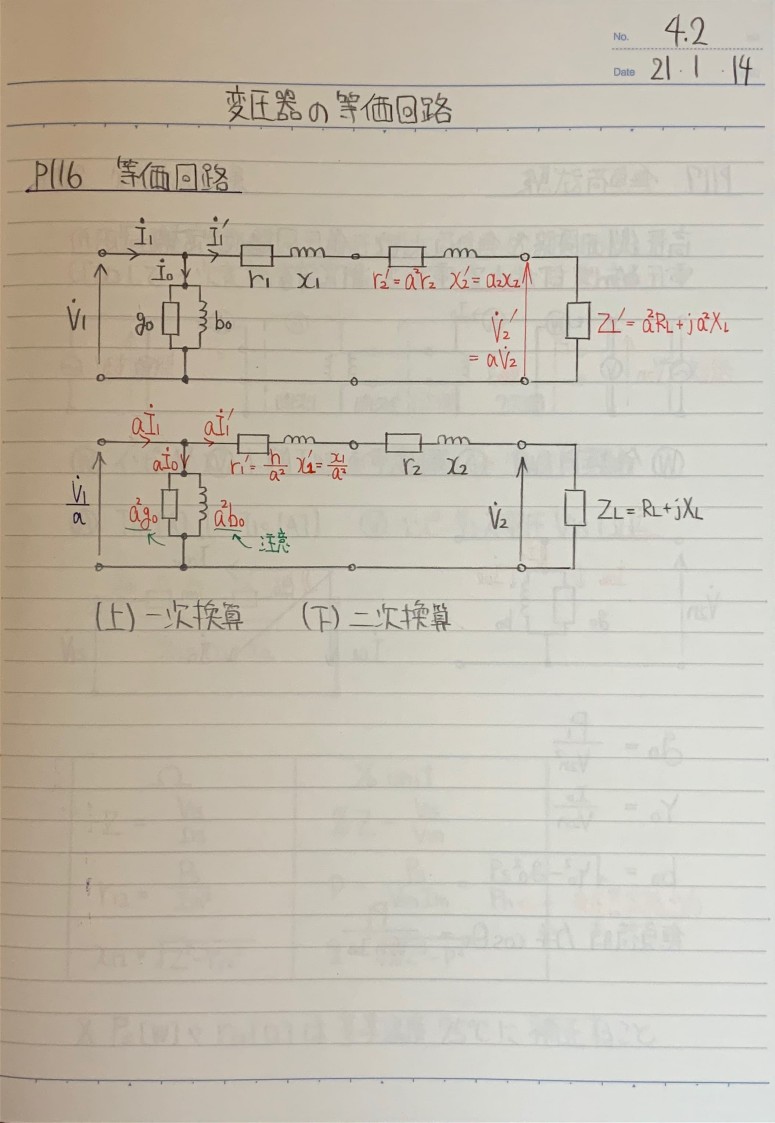 No. 4.2
Date 21・1・14
変圧器の等価回路
P116 等価回路
İ₁ İ₁′
İ₀ r₁ x₁ r₂′=a²r₂ x₂′=a₂x₂
V̇₁ g₀ b₀ V̇₂′ ZL′=a²RL+ja²XL
=aV̇₂
aİ₁ aİ₁′
aİ₀ r₁′=r₁/a² x₁′=x₁/a² r₂ x₂
V̇₁/a a²g₀ a²b₀ V̇₂ ZL=RL+jXL
注意
(上)一次換算 (下)二次換算